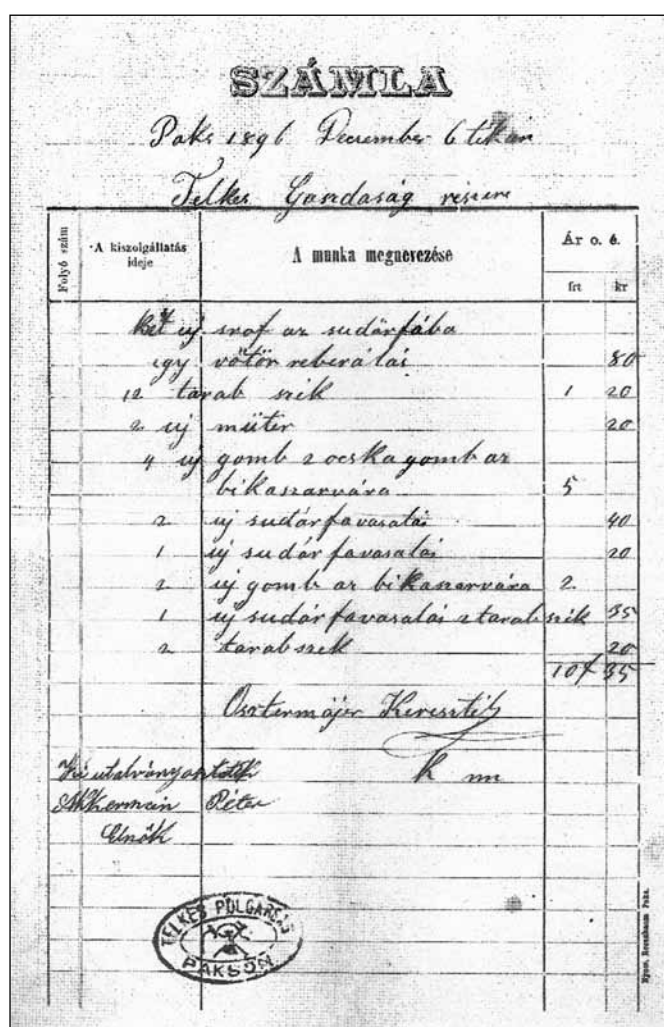 SZÁMLA
Paks 1896 December 6 tikán
Telkes Gazdaság részére
Folyó szám
A kiszolgáltatás ideje
A munka megnevezése
Ár o. é.
frt kr
Két új sróf az sudárfába
egy vötör reberálás 80
12 tarab szik 1 20
2 új müter 20
4 új gomb 2 ocska gomb az
bikaszarvára 5
2 új sudárfavasalás 40
1 új sudárfavasalás 20
2 új gomb az bikaszarvára 2
1 új sudárfavasalás 2 tarab szik 35
2 tarab szek 20
10f 35
Osztermájer Keresztély
K
Ki utalványoztatik
Akkermán Péter
Elnök
TELKES POLGÁRSÁG
PAKSON
Nyom. Rosenbaum Paks.